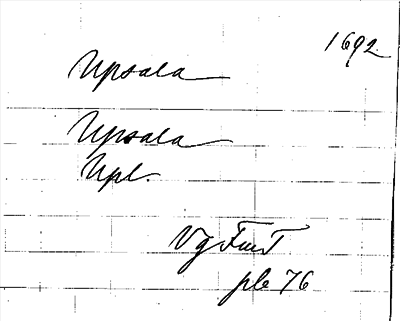 1692.
Upsala
Upsala
Upl.
Vg FmT
plb 76